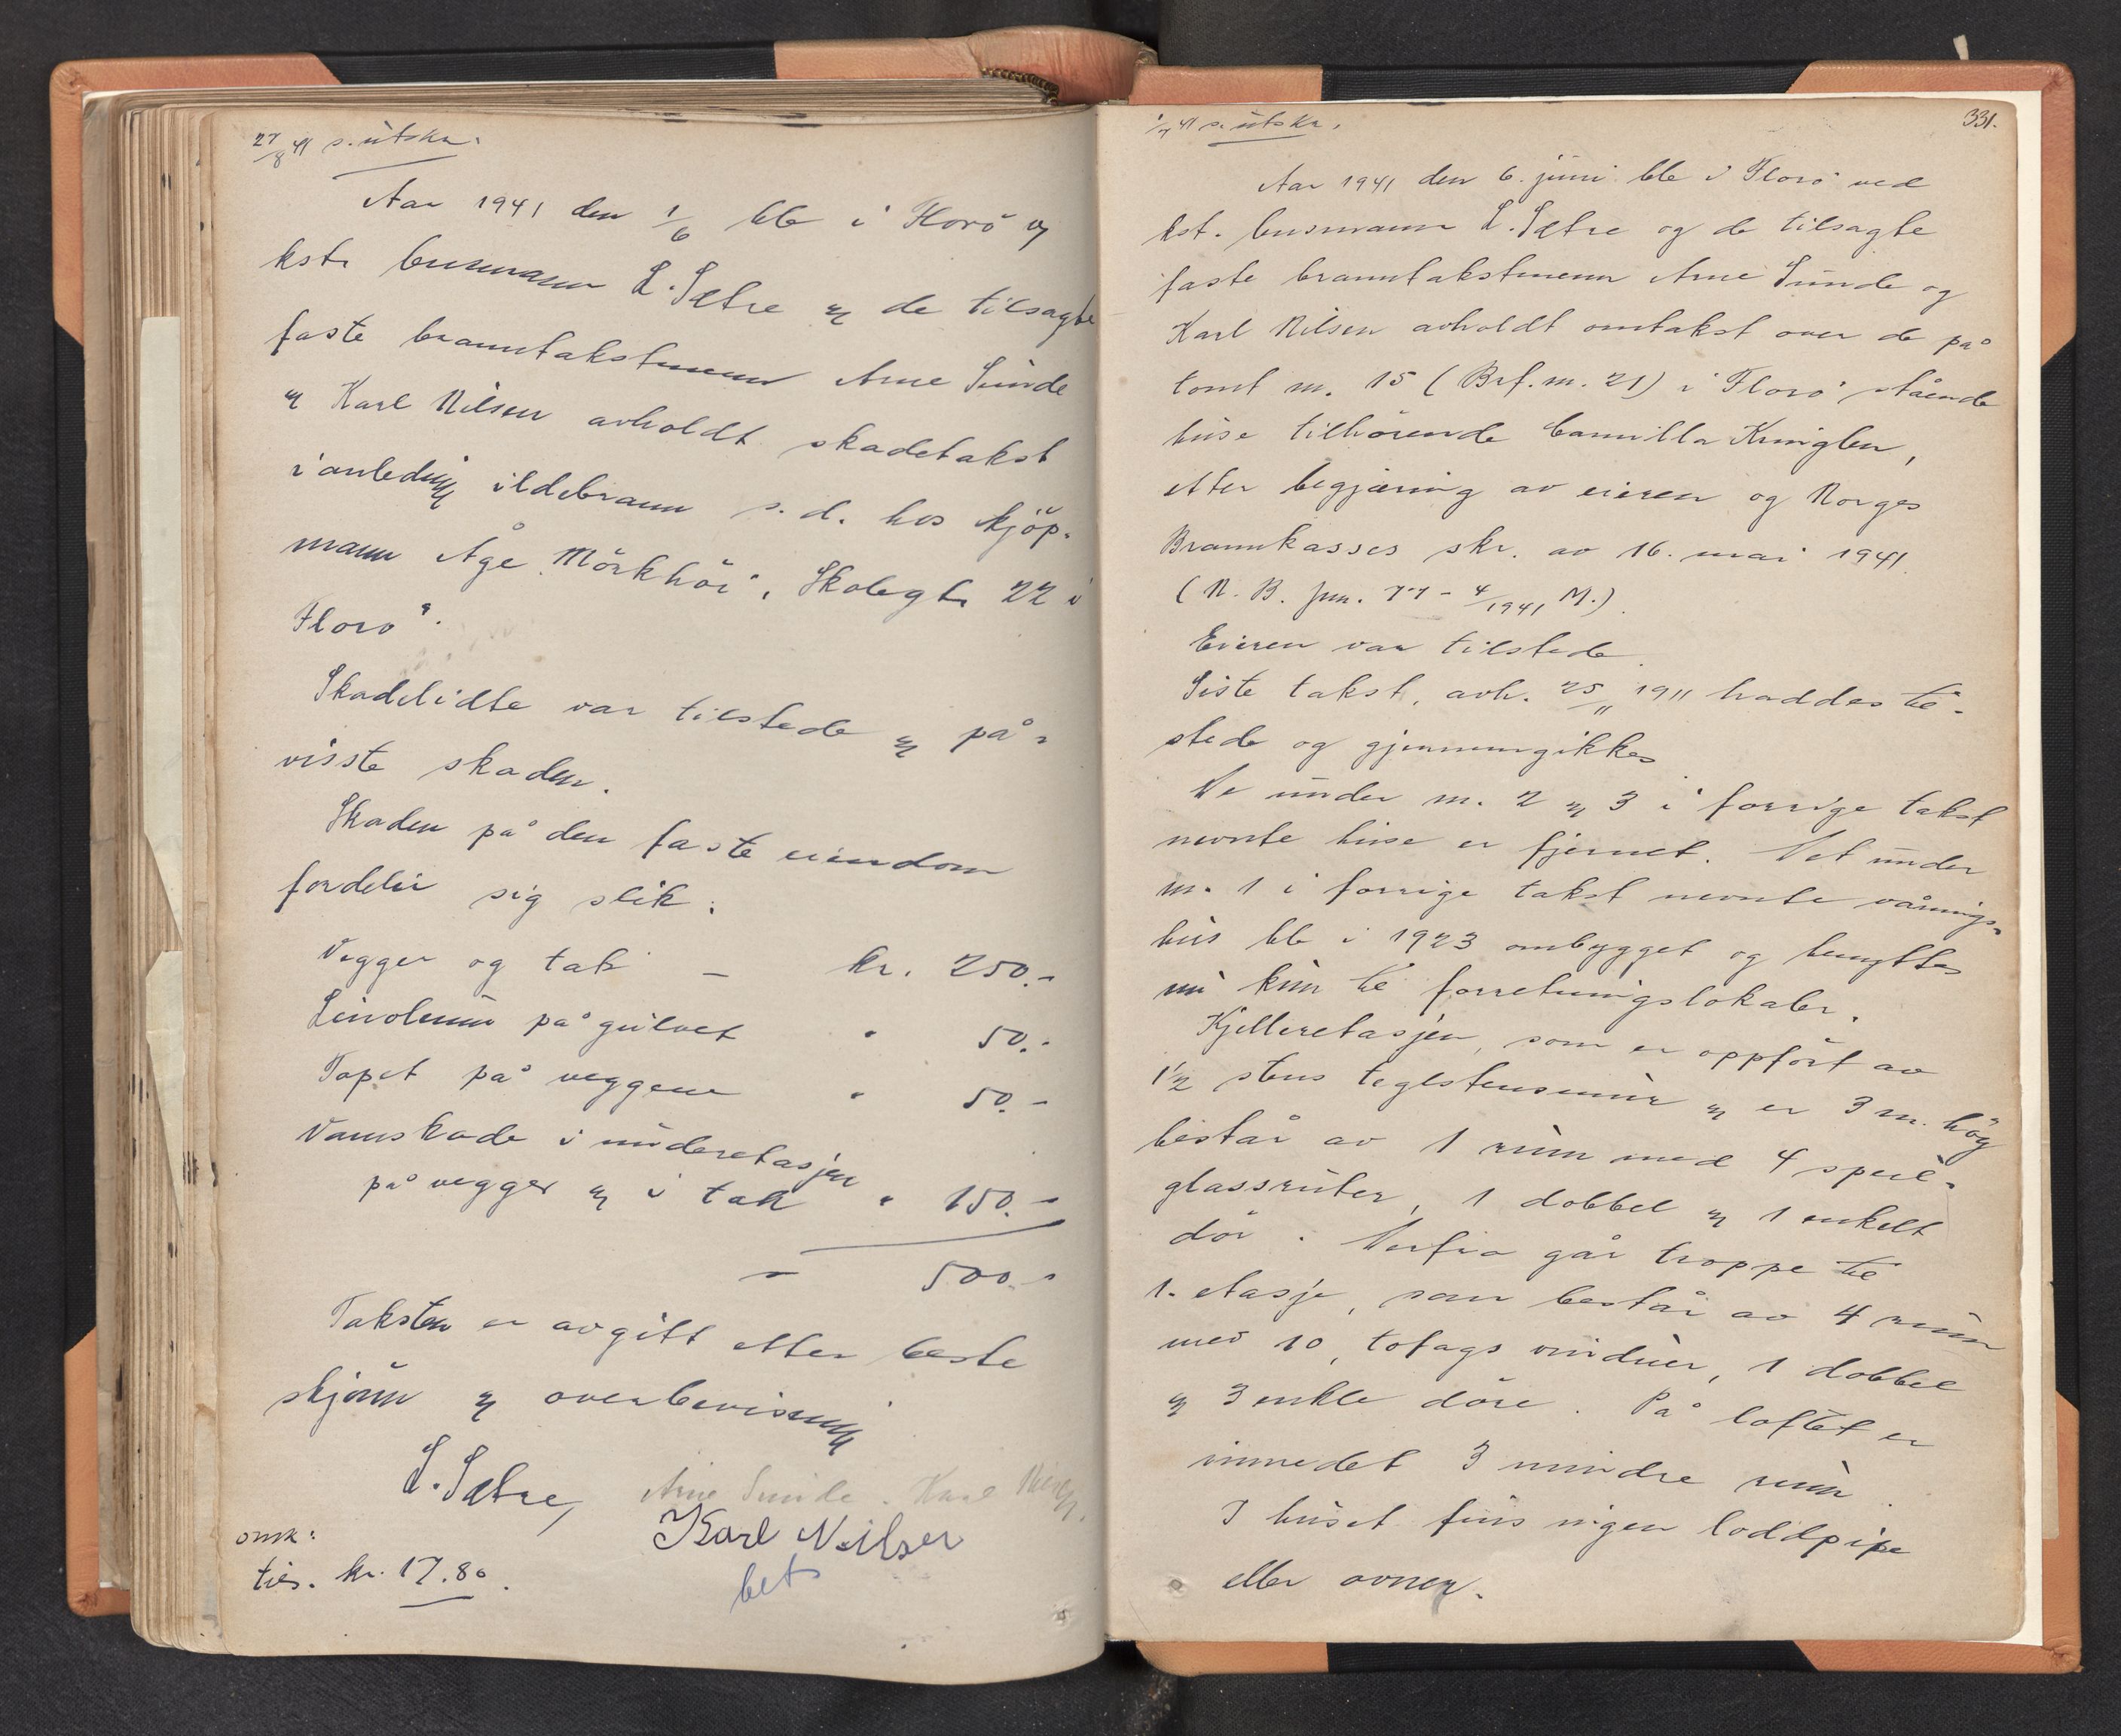 27/8 41 s. utskr.
Aar 1941 den 1/6 ble i Florö av
kst. busmann L. Sætre og de tilsagte
faste branntakstmenn Arne Sunde
og Karl Nilsen avholdt skadetakst
i anledning ildebrann s. d. hos kjöp-
mann Åge Mörkhöi, Skolegt. 22 i
Florö.
Skadelidte var tilstede og på-
viste skaden.
Skaden på den faste eiendom
fordeler sig slik:
Vegger og tak – kr. 250.-
Linoleum på gulvet " 50.-
Tapet på veggene " 50.-
Vannskade i underetasjen
på vegger og i tak " 150.-
" 500.-
Taksten er avgitt etter beste
skjönn og overbevisning
L. Sætre, Arne Sunde. Karl Nilsen.
Karl Nilsen
omk:
tils. kr. 17.80.
bet.
1/7 41 s. utskr.
331.
Aar 1941 den 6. juni ble i Florö ved
kst. busmann L. Sætre og de tilsagte
faste branntakstmenn Arne Sunde og
Karl Nilsen avholdt omtakst over de på
tomt nr. 15 (Brf. nr. 21) i Florö stående
huse tilhörende Camilla
etter begjæring av eieren og Norges
Brannkasses skr. av 16. mai 1941.
(N. B. Jnr. 77 - 4/1941 M.).
Eieren var tilstede.
Siste takst, avh. 25/11 1911 haddes til-
stede og gjennemgikkes
De under nr. 2 og 3 i forrige takst
nevnte huse er fjernet. Det under
nr. 1 i forrige takst nevnte vånings-
hus ble i 1923 ombygget og benyttes
nu kun til forretningslokaler.
Kjelleretasjen, som er oppfört av
1 1/2 stens teglstensmur og er 3 m. höy
består av 1 rum med 4 speil-
glassruter, 1 dobbel og 1 enkelt
dör. Derfra går troppe til
1. etasje, som består av 4 rum
med 10, tofags vinduer, 1 dobbel
og 3 enkle döre. På loftet er
innredet 3 mindre rum.
I huset fins ingen loddpipe
eller ovner.